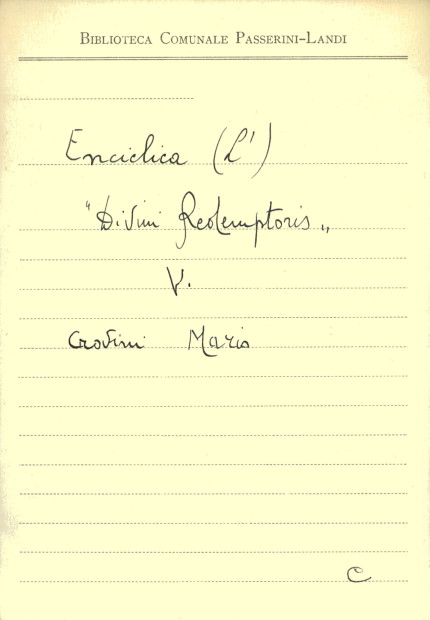 BIBLIOTECA COMUNALE PASSERINI-LANDI
Enciclica (L')
"Divini Redemptoris„
V.
Crovini Mario
C